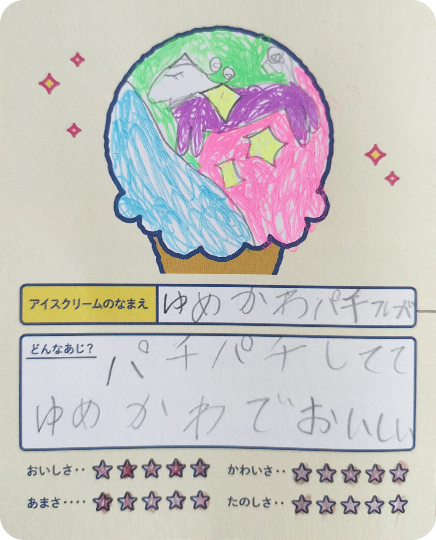 アイスクリームのなまえ ゆめかわパチ
どんなあじ？ パチパチしてて
ゆめかわでおいしい
おいしさ‥ ★★★★★ かわいさ‥ ★★★★★
あまさ‥‥ ★★★★★ たのしさ‥ ★★★★★